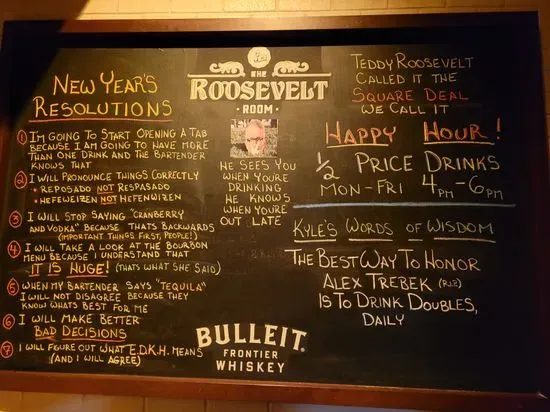 NEW YEAR'S
RESOLUTIONS
1 I'M GOING TO START OPENING A TAB
BECAUSE I AM GOING TO HAVE MORE
THAN ONE DRINK AND THE BARTENDER
KNOWS THAT
2 I WILL PRONOUNCE THINGS CORRECTLY
• REPOSADO NOT RESPASADO
• HEFEWEIZEN NOT HEFENWEIZEN
3 I WILL STOP SAYING "CRANBERRY
AND VODKA" BECAUSE THATS BACKWARDS
(IMPORTANT THINGS FIRST, PEOPLE!)
4 I WILL TAKE A LOOK AT THE BOURBON
MENU BECAUSE I UNDERSTAND THAT
IT IS HUGE! (THATS WHAT SHE SAID)
5 WHEN MY BARTENDER SAYS "TEQUILA"
I WILL NOT DISAGREE BECAUSE THEY
KNOW WHATS BEST FOR ME
6 I WILL MAKE BETTER
BAD DECISIONS
7 I WILL FIGURE OUT WHAT E.D.K.H. MEANS
(AND I WILL AGREE)
THE
ROOSEVELT
• ROOM •
HE SEES YOU
WHEN YOU'RE
DRINKING
HE KNOWS
WHEN YOU'RE
OUT LATE
BULLEIT.
FRONTIER
WHISKEY
TEDDY ROOSEVELT
CALLED IT THE
SQUARE DEAL
WE CALL IT
HAPPY HOUR!
½ PRICE DRINKS
MON-FRI 4PM-6PM
KYLE'S WORDS OF WISDOM
THE BEST WAY TO HONOR
ALEX TREBEK (R.I.P)
IS TO DRINK DOUBLES,
DAILY